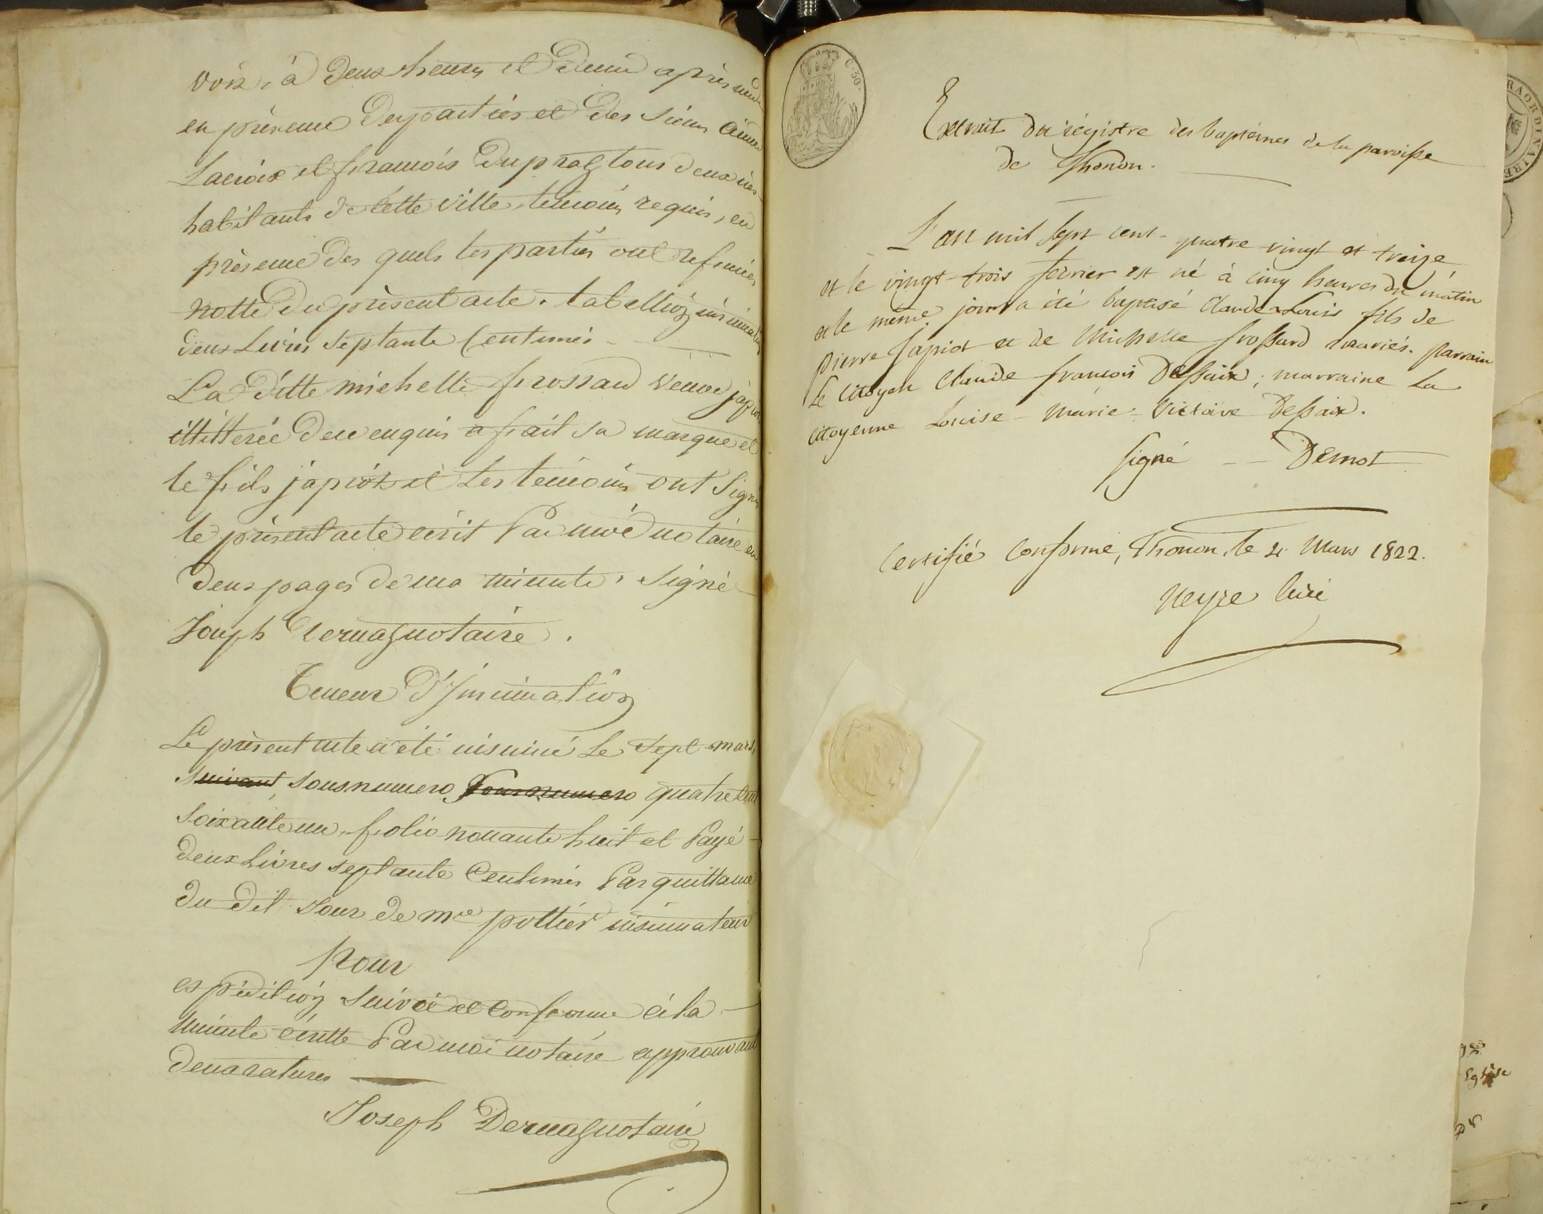 voix, à deux heures et demie après midi
en présence des parties et des sieurs aimé
Lacroix et françois Dupraz tous deux
habitants de cette ville, témoins requis, en
présence des quels les parties ont
notte du présent acte. tabellion
deux Livres septante Centimes
La ditte michelle frossard veuve japiot
illitterée de ce enquis a fait sa marque et
le fils japiot et les témoins ont signé
le présent acte écrit Par moi notaire en
deux pages de ma minute, Signé
Joseph notaire.
Teneur D'Insinuation
Le présent acte a été insinué Le sept mars
suivant, sous numero sous numero quatre cent
soixante un, folio nonante huit et Payé
deux Livres septante Centimes Par quittance
du dit jour de mre pottier insinuateur
pour
expédition suivie et conforme à la
minute écritte Par moi notaire approuvant
deux ratures
Joseph notaire
C. 50
Extrait du régistre des baptêmes de la paroisse
de Thonon.
L'an mil sept cent quatre vingt et treize
et le vingt-trois fevrier est né à cinq heures du matin
et le même jour a été baptisé Claude Louis fils de
pierre Japiot et de Michelle frossard mariés. parrain
Le citoyen Claude françois Dessaix; marraine La
citoyenne Louise-Marie-Victoire Dessaix.
signé — Demot
Certifié Conforme, Thonon, le 21 Mars 1822.
Neyre Curé